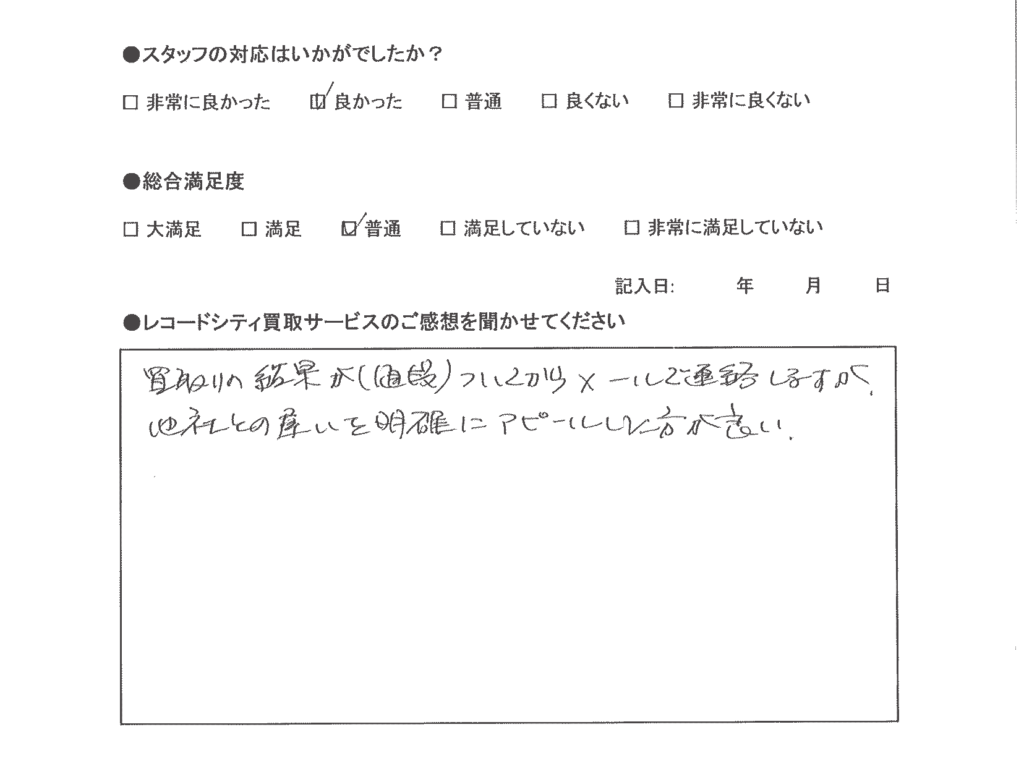 ●スタッフの対応はいかがでしたか？
□ 非常に良かった ☑ 良かった □ 普通 □ 良くない □ 非常に良くない
●総合満足度
□ 大満足 □ 満足 ☑ 普通 □ 満足していない □ 非常に満足していない
記入日: 年 月 日
●レコードシティ買取サービスのご感想を聞かせてください
買取りの結果が(値段)ついてからメールで連絡しますが、
他社との違いを明確にアピールした方が良い.